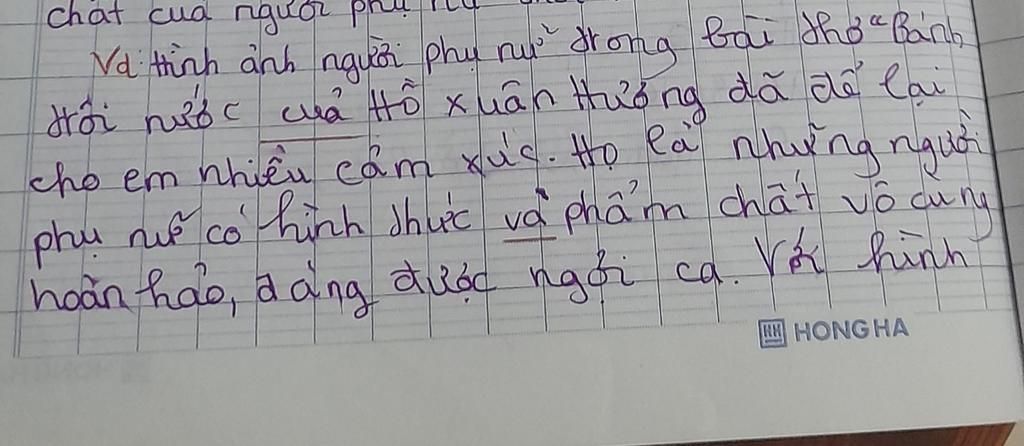 chất của người phụ nữ
Vd: Hình ảnh người phụ nữ trong bài thơ "Bánh
trôi nước của Hồ Xuân Hương đã để lại
cho em nhiều cảm xúc. Họ là những người
phụ nữ có hình thức và phẩm chất vô cùng
hoàn hảo, đáng được ngợi ca. Với hình
HONG HA